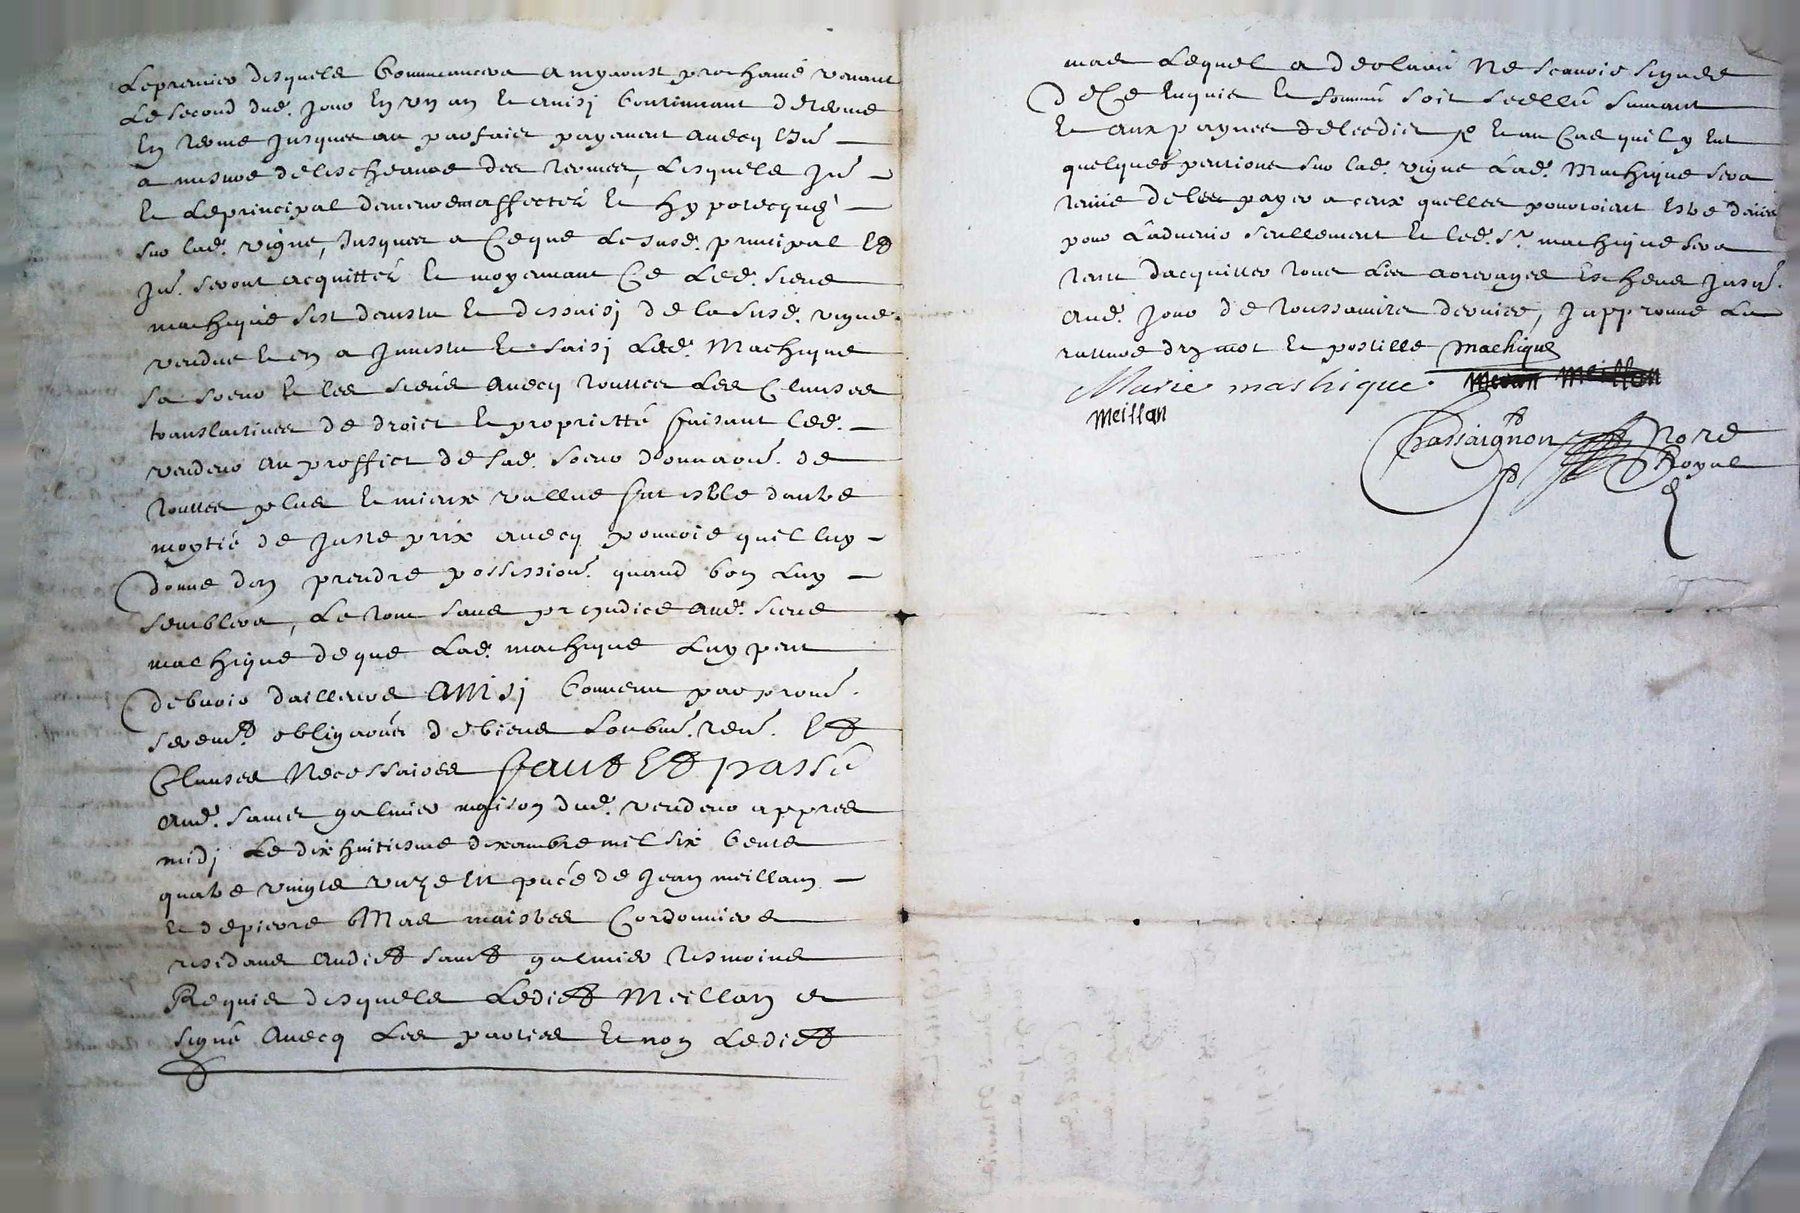 Lepremier desquels Commancera a myaoust prochainé venant
Le second dud. jour En un an Et ainsi Continuant de terme
En terme Jusques au parfaict payement avecq Int
a mesure delescheance des termes, Lesquels Int
Et Leprincipal demeurem affectés Et hypotecqué
sur lad. vigne, Jusques a Ceque Lesusd. principal Et
Int. seront acquittés Et moyennant Ce Led. sieur
machique sest demistu Et dessaisj de la susd. vigne
vendue Et en a Jnvestu Et saisj Lad. Machique
sa soeur Et les siens avecq touttes Les Clauses
translatives de droict Et proprietté faisant led.
vendeur au proffict de sad. soeur donnaon. de
touttes plus Et mieux vallue fut Elle doultre
moytié de Juste prix avecq pouvoir quil luy
donne den prendre possession. quand bon Luy
semblera, Le tout sans prejudice aud. sieur
machique deque Lad. machique Luy peut
debvoir dailleurs Ainsj Convenu par prom.
serem. obligaons de biens soubm. ren. Et
Clauses Necessaires fait Et passé
aud. sainct galmier maison dud. vendeur appres
midj Le dix huitiesme dexambre mil six Cents
quatre vingts unze En pnce de Jean meillan
Et de pierre Mas maistres Cordonniers
residans audict sainct galmier tesmoins
Requis desquels Ledict Meillan a
signé avecq Les parties Et non Ledict
mas Lequel a declairé Ne scavoir signer
de Ce Enquis Et sommé soit scellé suivant
Et aux paynes deledict Et au Cas quil y Eut
quelques pentions sur lad. vigne Lad. Machique sera
tenue de les payer a ceux quelles pouroient Estre deües
pour Ladvenir seullement Et led. sr. machique sera
tenu dacquitter tous Les arreyages Escheus Jusqu.
aud. jour de toussaincts dernier, Japprouve La
rature dun mot Et postille machique
Marie mashique meillan
meillan
Chassaignon Nore
Royal